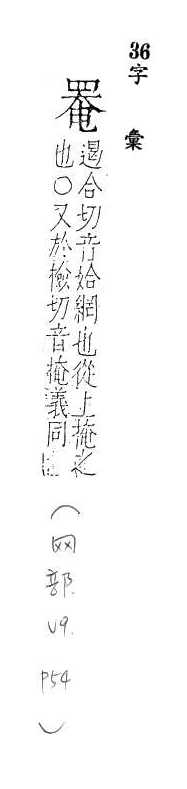 36字彙
罨
遏合切音姶網也從上掩之
也○又於檢切音掩義同
(网部. V9. P54)